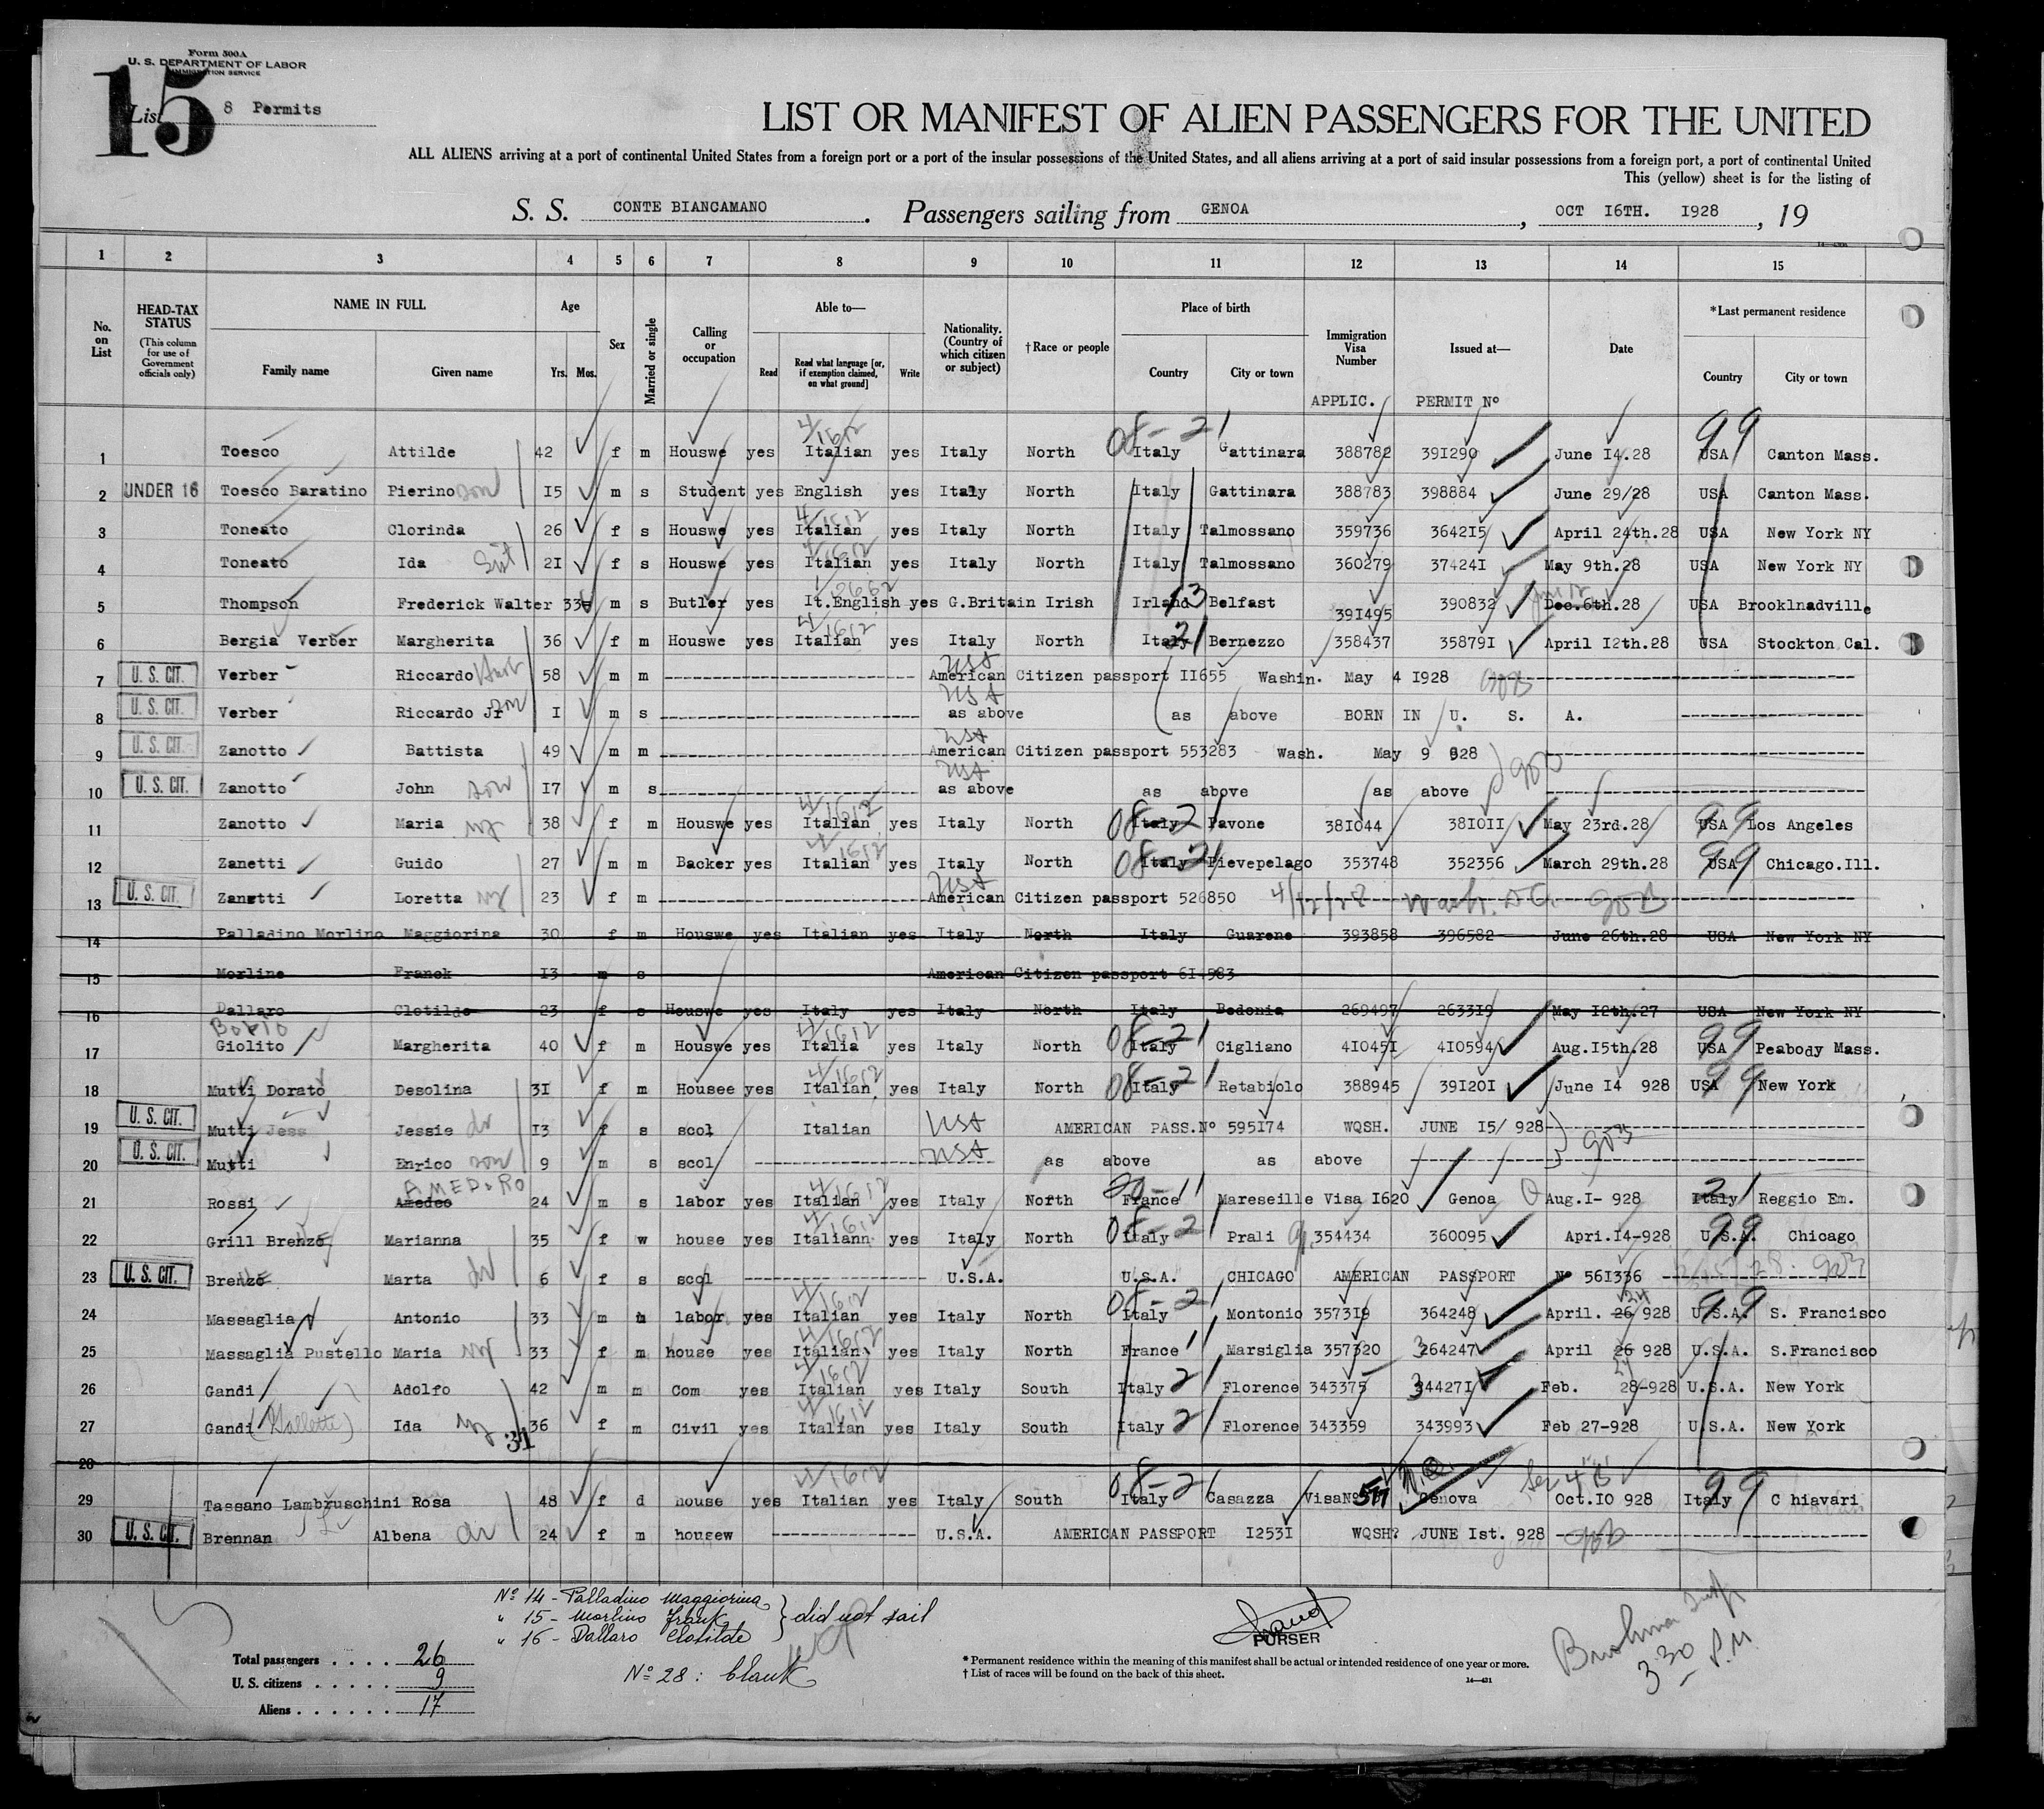 Form 500A
U. S. DEPARTMENT OF LABOR
IMMIGRATION SERVICE
15
List 8 Permits
LIST OR MANIFEST OF ALIEN PASSENGERS FOR THE UNITED
ALL ALIENS arriving at a port of continental United States from a foreign port or a port of the insular possessions of the United States, and all aliens arriving at a port of said insular possessions from a foreign port, a port of continental United
This (yellow) sheet is for the listing of
S. S. CONTE BIANCAMANO. Passengers sailing from GENOA, OCT 16TH. 1928, 19
1 2 3 4 5 6 7 8 9 10 11 12 13 14 15
No. on List
HEAD-TAX STATUS (This column for use of Government officials only)
NAME IN FULL
Family name Given name
Age
Yrs. Mos.
Sex
Married or single
Calling or occupation
Able to—
Read Read what language [or, if exemption claimed, on what ground] Write
Nationality. (Country of which citizen or subject)
†Race or people
Place of birth
Country City or town
Immigration Visa Number
APPLIC.
Issued at—
PERMIT Nº
Date
*Last permanent residence
Country City or town
1 Toesco Attilde 42 f m Houswe yes Italian 4/1612 yes Italy North 08-21 Italy Gattinara 388782 391290 June 14.28 99 USA Canton Mass.
2 UNDER 16 Toesco Baratino Pierino son 15 m s Student yes English yes Italy North Italy Gattinara 388783 398884 June 29/28 USA Canton Mass.
3 Toneato Clorinda 26 f s Houswe yes Italian 4/1612 yes Italy North Italy Talmossano 359736 364215 April 24th.28 USA New York NY
4 Toneato Ida Sist 21 f s Houswe yes Italian 4/1612 yes Italy North Italy Talmossano 360279 374241 May 9th.28 USA New York NY
5 Thompson Frederick Walter 33 m s Butler yes It.English yes G.Britain Irish Irland 13 Belfast 391495 390832 Dec.6th.28 USA Brooklnadville
6 Bergia Verber Margherita 36 f m Houswe yes Italian 4/1612 yes Italy North Italy 21 Bernezzo 358437 358791 April 12th.28 USA Stockton Cal.
7 U. S. CIT. Verber Riccardo 58 m m USA American Citizen passport 11655 Washin. May 4 1928
8 U. S. CIT. Verber Riccardo Jr son 1 m s USA as above as above BORN IN U. S. A.
9 U. S. CIT. Zanotto Battista 49 m m USA American Citizen passport 553283 Wash. May 9 928
10 U. S. CIT. Zanotto John son 17 m s USA as above as above as above
11 Zanotto Maria 38 f m Houswe yes Italian 4/1612 yes Italy North 08-21 Italy Pavone 381044 381011 May 23rd.28 99 USA Los Angeles
12 Zanetti Guido 27 m m Backer yes Italian 4/1612 yes Italy North 08-21 Italy Pievepelago 353748 352356 March 29th.28 99 USA Chicago.Ill.
13 U. S. CIT. Zanetti Loretta 23 f m USA American Citizen passport 526850 4/12/28 Wash. D.C.
14 Palladino Morlino Maggiorina 30 f m Houswe yes Italian yes Italy North Italy Guarene 393858 396582 June 26th.28 USA New York NY
15 Morlino Franck 13 m s American Citizen passport 614983
16 Dallaro Clotilde 23 f s Houswe yes Italy yes Italy North Italy Bedonia 269497 263319 May 12th.27 USA New York NY
17 Giolito Margherita 40 f m Houswe yes Italia 4/1612 yes Italy North 08-21 Italy Cigliano 410451 410594 Aug.15th.28 99 USA Peabody Mass.
18 Mutti Dorato Desolina 31 f m Housee yes Italian 4/1612 yes Italy North 08-21 Italy Retabiolo 388945 391201 June 14 928 99 USA New York
19 U. S. CIT. Mutti Jess Jessie 13 f s scol Italian USA AMERICAN PASS.Nº 595174 WQSH. JUNE 15/ 928
20 U. S. CIT. Mutti Enrico son 9 m s scol USA as above as above
21 Rossi Amedeo AMEDORO 24 m s labor yes Italian 4/1612 yes Italy North France 11 Mareseille Visa 1620 Genoa Aug.1- 928 Italy 21 Reggio Em.
22 Grill Brenzo Marianna 35 f w house yes Italiann 4/1612 yes Italy North 08-21 Italy Prali 354434 360095 Apri.14-928 99 U.S.A. Chicago
23 U. S. CIT. Brenzo Marta 6 f s scol U.S.A. U.S.A. CHICAGO AMERICAN PASSPORT Nº 561336
24 Massaglia Antonio 33 m m labor yes Italian 4/1612 yes Italy North 08-21 Italy Montonio 357319 364248 April. 26 24 928 99 U.S.A. S. Francisco
25 Massaglia Pustello Maria 33 f m house yes Italian 4/1612 yes Italy North France 11 Marsiglia 357320 3 264247 April 26 24 928 U.S.A. S.Francisco
26 Gandi Adolfo 42 m m Com yes Italian 4/1612 yes Italy South Italy 21 Florence 343375 344271 Feb. 28-928 U.S.A. New York
27 Gandi Ida 36 f m Civil yes Italian 4/1612 yes Italy South Italy 21 Florence 343359 343993 Feb 27-928 U.S.A. New York
28
29 Tassano Lambruschini Rosa 48 f d house yes Italian 4/1612 yes Italy South 08-21 Italy Casazza VisaNº Genova Oct.10 928 Italy 99 C hiavari
30 U. S. CIT. Brennan Albena 24 f m housew U.S.A. AMERICAN PASSPORT 12531 WQSH? JUNE 1st. 928
Nº 14 - Palladino Maggiorina
" 15 - Morlino Frank
" 16 - Dallaro Clotilde
} did not sail
Nº 28: blank
Total passengers . . . . 26
U. S. citizens . . . . . 9
Aliens . . . . . . 17
PURSER
* Permanent residence within the meaning of this manifest shall be actual or intended residence of one year or more.
† List of races will be found on the back of this sheet.
14—431
3 30 P.M.